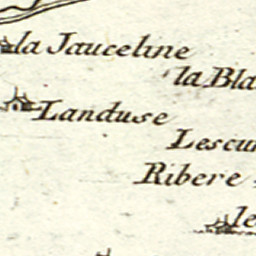 la Jauceline
la Bla
Landuse
Lescur
Ribere
le